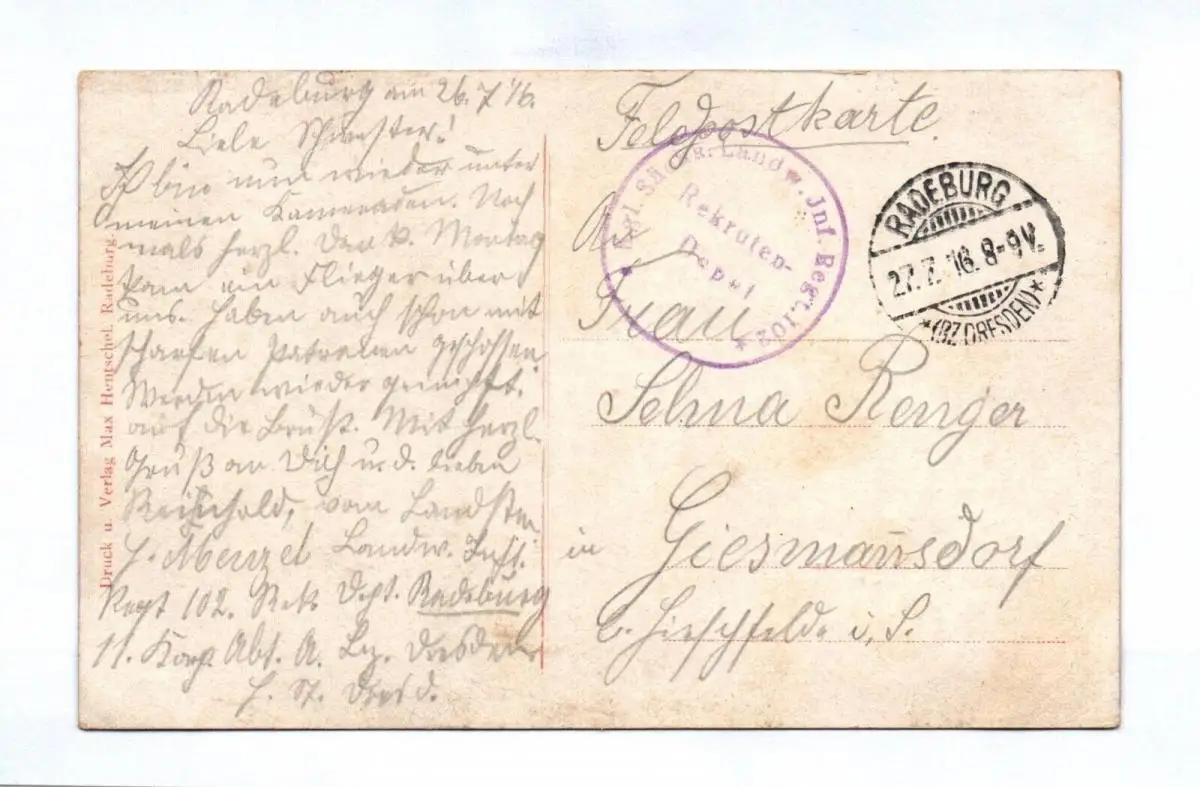 Radeburg am 26.7.16.
Liebe Schwester!
Ich bin nun wieder unter
meinen Kameraden. Noch
mals herzl. Dank. Montag
kam ein Flieger über
uns. Haben auch schon mit
scharfen Patronen geschossen
Werden wieder geimpft.
auf die Brust. Mit herzl.
Gruß an Dich u. d. lieben
Reinhold, vom
H. Menzel Landw. Inft.
Regt 102. Rek. Dept. Radeburg
11. Korp. Abt. A. Bz. Dresden
Druck u. Verlag Max Hentschel, Radeburg.
Feldpostkarte.
Kgl. Sächs. Landw. Inf. Regt. 102
Rekruten-
Depot
RADEBURG
27.7.16. 8-9V.
*(BZ. DRESDEN)*
An
Frau
Selma Renger
in Giesmannsdorf
b. Hirschfelde i. S.